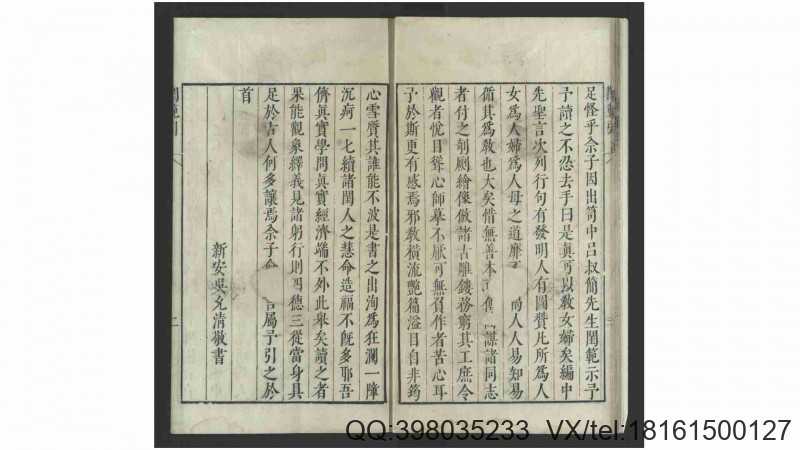 足怪乎佘子因出笥中呂叔簡先生閨範示予
予讀之不忍去手曰是真可以教女婦矣編中
先聖言次列行句有發明人有圖贊凡所為人
女為人婦為人母之道靡 人人易知易
循其為教也大矣惜無善本 謀諸同志
者付之剞劂繪像倣諸古雕鏤務窮其工庶令
觀者怳目聳心師摹不厭可無負作者苦心耳
予於斯更有感焉邪教橫流艷篇溢目自非筠
心雪質其誰能不波是書之出洵為狂瀾一障
沉疴一七續諸閨人之慧命造福不旣多耶吾
儕真實學問真實經濟端不外此舉矣讀之者
果能觀象繹義見諸躬行則四德三從當身具
足於古人何多讓焉佘子 屬予引之於
首
新安吳允清敬書
QQ:398035233 VX/tel:18161500127